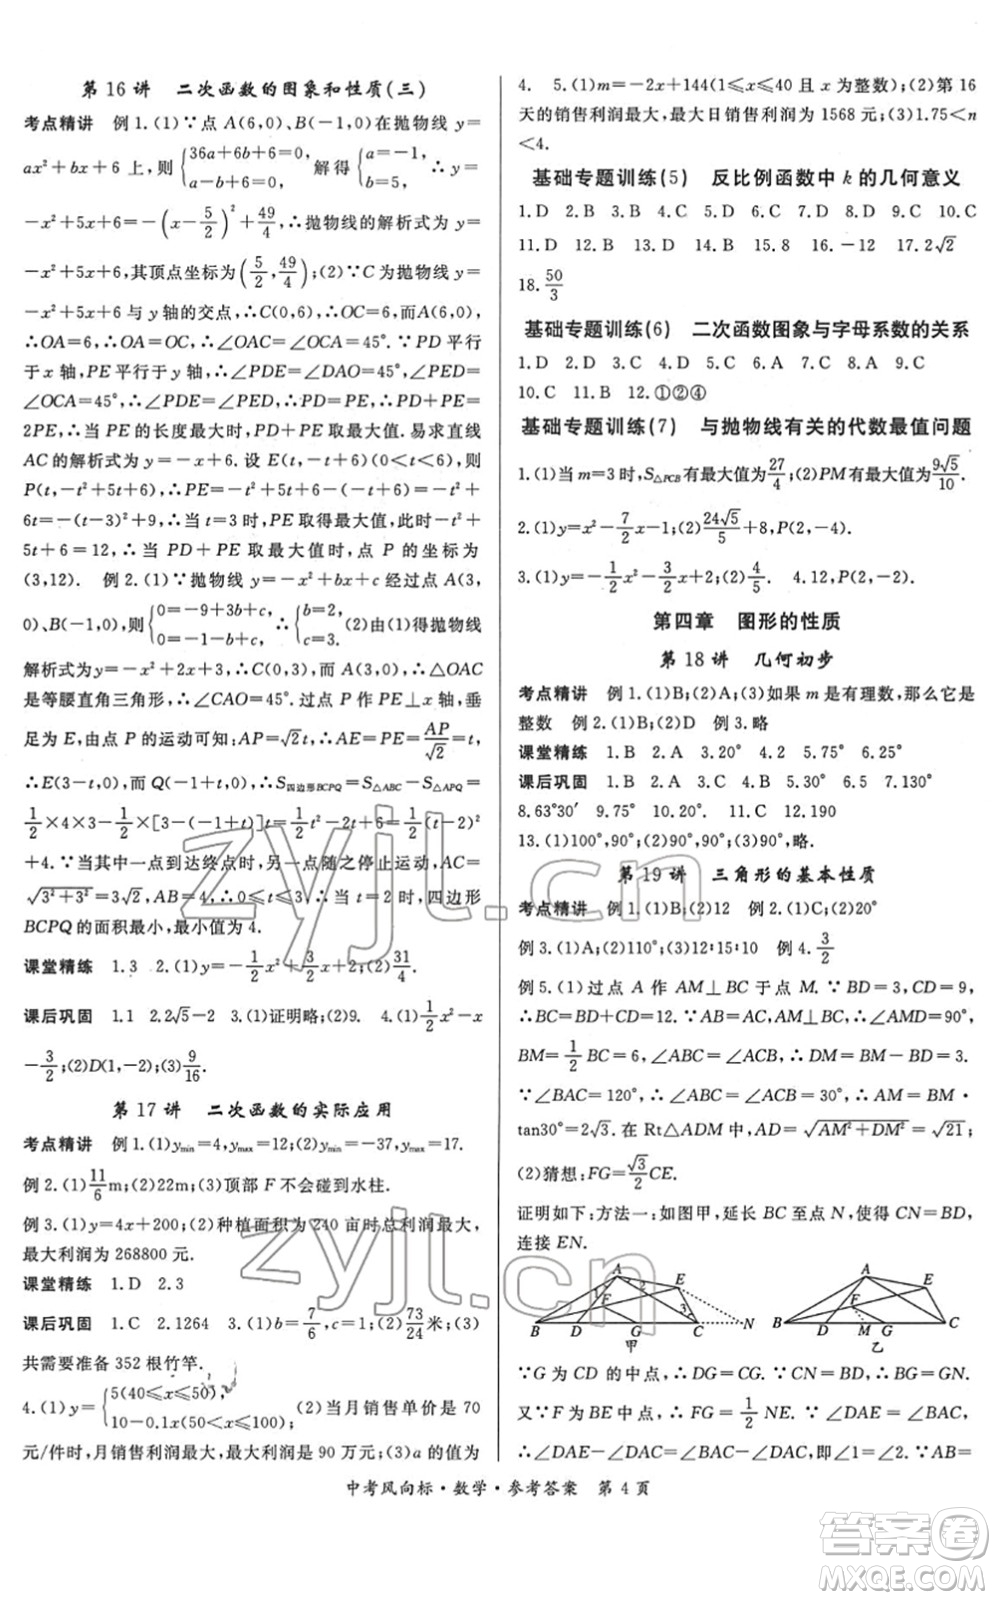 第 16 讲 二次函数的图象和性质(三)
考点精讲 例 1.(1)∵点 A(6,0)、B(-1,0)在抛物线 y=
ax²+bx+6 上,则{36a+6b+6=0, a-b+6=0, 解得{a=-1, b=5, ∴y=
-x²+5x+6=-(x-5/2)²+49/4,∴抛物线的解析式为 y=
-x²+5x+6,其顶点坐标为(5/2,49/4);(2)∵C 为抛物线 y=
-x²+5x+6 与 y 轴的交点,∴C(0,6),∴OC=6,而A(6,0),
∴OA=6,∴OA=OC,∴∠OAC=∠OCA=45°.∵PD 平行
于 x 轴,PE平行于 y 轴,∴∠PDE=∠DAO=45°,∠PED=
∠OCA=45°,∴∠PDE=∠PED=45°,∴PD=PE,∴PD+PE=
2PE,∴当 PE 的长度最大时,PD+PE取最大值.易求直线
AC 的解析式为 y=-x+6.设 E(t,-t+6)(0<t<6),则
P(t,-t²+5t+6),∴PE=-t²+5t+6-(-t+6)=-t²+
6t=-(t-3)²+9,∴当 t=3 时,PE取得最大值,此时-t²+
5t+6=12,∴当 PD+PE 取最大值时,点 P 的坐标为
(3,12). 例 2.(1)∵抛物线 y=-x²+bx+c 经过点 A(3,
0)、B(-1,0),则{0=-9+3b+c, 0=-1-b+c, ∴{b=2, c=3. (2)由(1)可得抛物线
解析式为 y=-x²+2x+3,∴C(0,3),∵OA=OC,∴△OAC
是等腰直角三角形,∴∠CAO=45°.过点 P 作 PE⊥x 轴,垂
足为 E,由点 P 的运动可知:AP=√2t,∴AE=PE=AP/√2=t,
∴E(3-t,0),而 Q(-1+t,0),∴S四边形BCPQ=S△ABC-S△APQ=
1/2×4×3-1/2×[3-(-1+t)]t=1/2t²-2t+6=1/2(t-2)²
+4.∵当其中一点到达终点时,另一点随之停止运动,AC=
√3²+3²=3√2,AB=4,∴0≤t≤3,∴当 t=2 时,四边形
BCPQ 的面积最小,最小值为 4.
课堂精练 1.3 2.(1)y=-1/2x²+3/2x+2;(2)31/4.
课后巩固 1.1 2.2√5-2 3.(1)证明略;(2)9. 4.(1)1/2x²-x
-3/2;(2)D(1,-2);(3)9/16.
第 17 讲 二次函数的实际应用
考点精讲 例 1.(1)ymin=4,ymax=12;(2)ymin=-37,ymax=17.
例 2.(1)11/6m;(2)22m;(3)顶部 F 不会碰到水柱.
例 3.(1)y=4x+200;(2)种植面积为 240 亩时总利润最大,
最大利润为 268800 元.
课堂精练 1.D 2.3
课后巩固 1.C 2.1264 3.(1)b=7/6,c=1;(2)73/24米;(3)
共需要准备 352 根竹竿.
4.(1)y={5(40≤x≤50), 10-0.1x(50≤x≤100); (2)当月销售单价是 70
元/件时,月销售利润最大,最大利润是 90 万元;(3)a 的值为
4. 5.(1)m=-2x+144(1≤x≤40 且 x 为整数);(2)第 16
天的销售利润最大,最大日销售利润为 1568 元;(3)1.75<n
<4.
基础专题训练(5) 反比例函数中 k 的几何意义
1.D 2.B 3.B 4.C 5.C 6.D 7.D 8.D 9.C 10.C
11.D 12.B 13.D 14.B 15.8 16.-12 17.2√2
18.50/3
基础专题训练(6) 二次函数图象与字母系数的关系
1.D 2.D 3.D 4.C 5.C 6.A 7.C 8.A 9.C
10.C 11.B 12.①②④
基础专题训练(7) 与抛物线有关的代数最值问题
1.(1)当 m=3 时,S△PCB有最大值为27/4;(2)PM有最大值为9√5/10.
2.(1)y=x²-7/2x-1;(2)24√5/5+8,P(2,-4).
3.(1)y=-1/2x²-3/2x+2;(2)4/5. 4.12,P(2,2).
第四章 图形的性质
第 18 讲 几何初步
考点精讲 例 1.(1)B;(2)A;(3)如果 m 是有理数,那么它是
整数 例 2.(1)B;(2)D 例 3.略
课堂精练 1.B 2.A 3.20° 4.2 5.75° 6.25°
课后巩固 1.B 2.A 3.C 4.B 5.30° 6.5 7.130°
8.63°30′ 9.75° 10.20° 11.C 12.190
13.(1)100°,90°;(2)90°,90°;(3)90°,略.
第 19 讲 三角形的基本性质
考点精讲 例 1.(1)B;(2)12 例 2.(1)C;(2)20°
例 3.(1)A;(2)110°;(3)12:15:10 例 4.3/2
例 5.(1)过点 A 作 AM⊥BC 于点 M.∵BD=3,CD=9,
∴BC=BD+CD=12.∵AB=AC,AM⊥BC,∴∠AMD=90°,
BM=1/2BC=6,∠ABC=∠ACB,∴DM=BM-BD=3.
∵∠BAC=120°,∴∠ABC=∠ACB=30°,∴AM=BM·
tan30°=2√3.在 Rt△ADM 中,AD=√AM²+DM²=√21;
(2)猜想:FG=√3/2CE,
证明如下:方法一:如图甲,延长 BC至点 N,使得 CN=BD,
连接 EN.
A E B D F G C N 1 2 3 甲
A E B D F M G C 乙
∵G 为 CD 的中点,∴DG=CG.∵CN=BD,∴BG=GN.
又∵F 为 BE 的中点,∴FG=1/2NE.∵∠DAE=∠BAC,
∴∠DAE-∠DAC=∠BAC-∠DAC,即∠1=∠2.∵AB=
中考风向标·数学·参考答案 第 4 页
zyjl.cn
zyjl.cn
答案圈
MXQE.COM